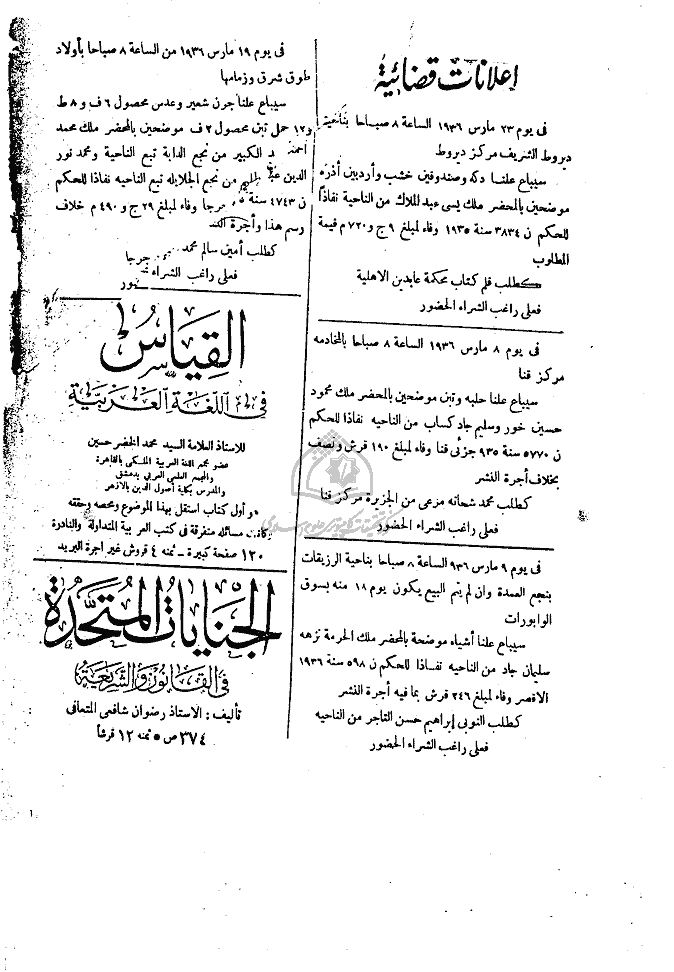 اعلانات قضائية
فى يوم ٢٣ مارس ١٩٣٦ الساعة ٨ صباحا بناحية
ديروط الشريف مركز ديروط
سيباع علنا دكة وصندوقين خشب وأردبين أذره
موضحين بالمحضر ملك يسى عبد الملاك من الناحية نفاذاً
للحكم ن ٣٨٣٤ سنة ١٩٣٥ وفاء لمبلغ ٩ ج و ٧٢٠ م قيمة
المطلوب
كطلب قلم كتاب محكمة عابدين الاهلية
فعلى راغب الشراء الحضور
فى يوم ٨ مارس ١٩٣٦ الساعة ٨ صباحا بالمخادمه
مركز قنا
سيباع علنا حلبه وتبن موضحين بالمحضر ملك محمود
حسين خور وسليم جاد كساب من الناحيه نفاذا للحكم
ن ٥٧٧٠ سنة ٩٣٥ جزئى قنا وفاء لمبلغ ١٩٠ قرش ونصف
بخلاف أجرة النشر
كطلب محمد شحاته مرعى من الجزيرة مركز قنا
فعلى راغب الشراء الحضور
فى يوم ٩ مارس ٩٣٦ الساعة ٨ صباحا بناحية الرزيقات
بنجع العمدة وان لم يتم البيع يكون يوم ١٨ منه بسوق
الوابورات
سيباع علنا أشياء موضحة بالمحضر ملك الحرمة نزهه
سليمان جاد من الناحيه نفاذا للحكم ن ٥٩٨ سنة ١٩٣٦
الاقصر وفاء لمبلغ ٢٤٦ قرش بما فيه أجرة النشر
كطلب النوبى إبراهيم حسن التاجر من الناحيه
فعلى راغب الشراء الحضور
فى يوم ١٩ مارس ١٩٣٦ من الساعة ٨ صباحا بأولاد
طوق شرق وزمامها
سيباع علنا جرن شعير وعدس محصول ٦ ف و ٨ ط
و١٢ حملى تبن محصول ٢ ف موضحين بالمحضر ملك محمد
الكبير من نجع الدابة تبع الناحية ومحمد نور
الدين من نجع الجلايله تبع الناحيه نفاذا للحكم
ن ٤٧٤٣ سنة جرجا وفاء لمبلغ ٢٩ ج و ٤٩٠ م خلاف
رسم هذا وأجرة
كطلب أمين سالم محمد جرجا
فعلى راغب الشراء
القياس
فى اللغة العربية
للاستاذ العلامة السيد محمد الخضر حسين
عضو مجمع اللغة العربية الملكى بالقاهرة
والمجمع العلمى العربى بدمشق
والمدرس بكلية أصول الدين بالأزهر
أول كتاب استقل بهذا الموضوع ومحصه وحققه
مسائله متفرقة فى كتب العربية المتداولة والنادرة
١٢٠ صفحة كبيرة ــ ثمنه ٤ قروش غير اجرة البريد
الجنايات المتحدة
فى القانون والشريعة
تأليف : الاستاذ رضوان شافعى المتعافى
٣٧٤ ص ٥ ثمنه ١٢ قرشاً
١